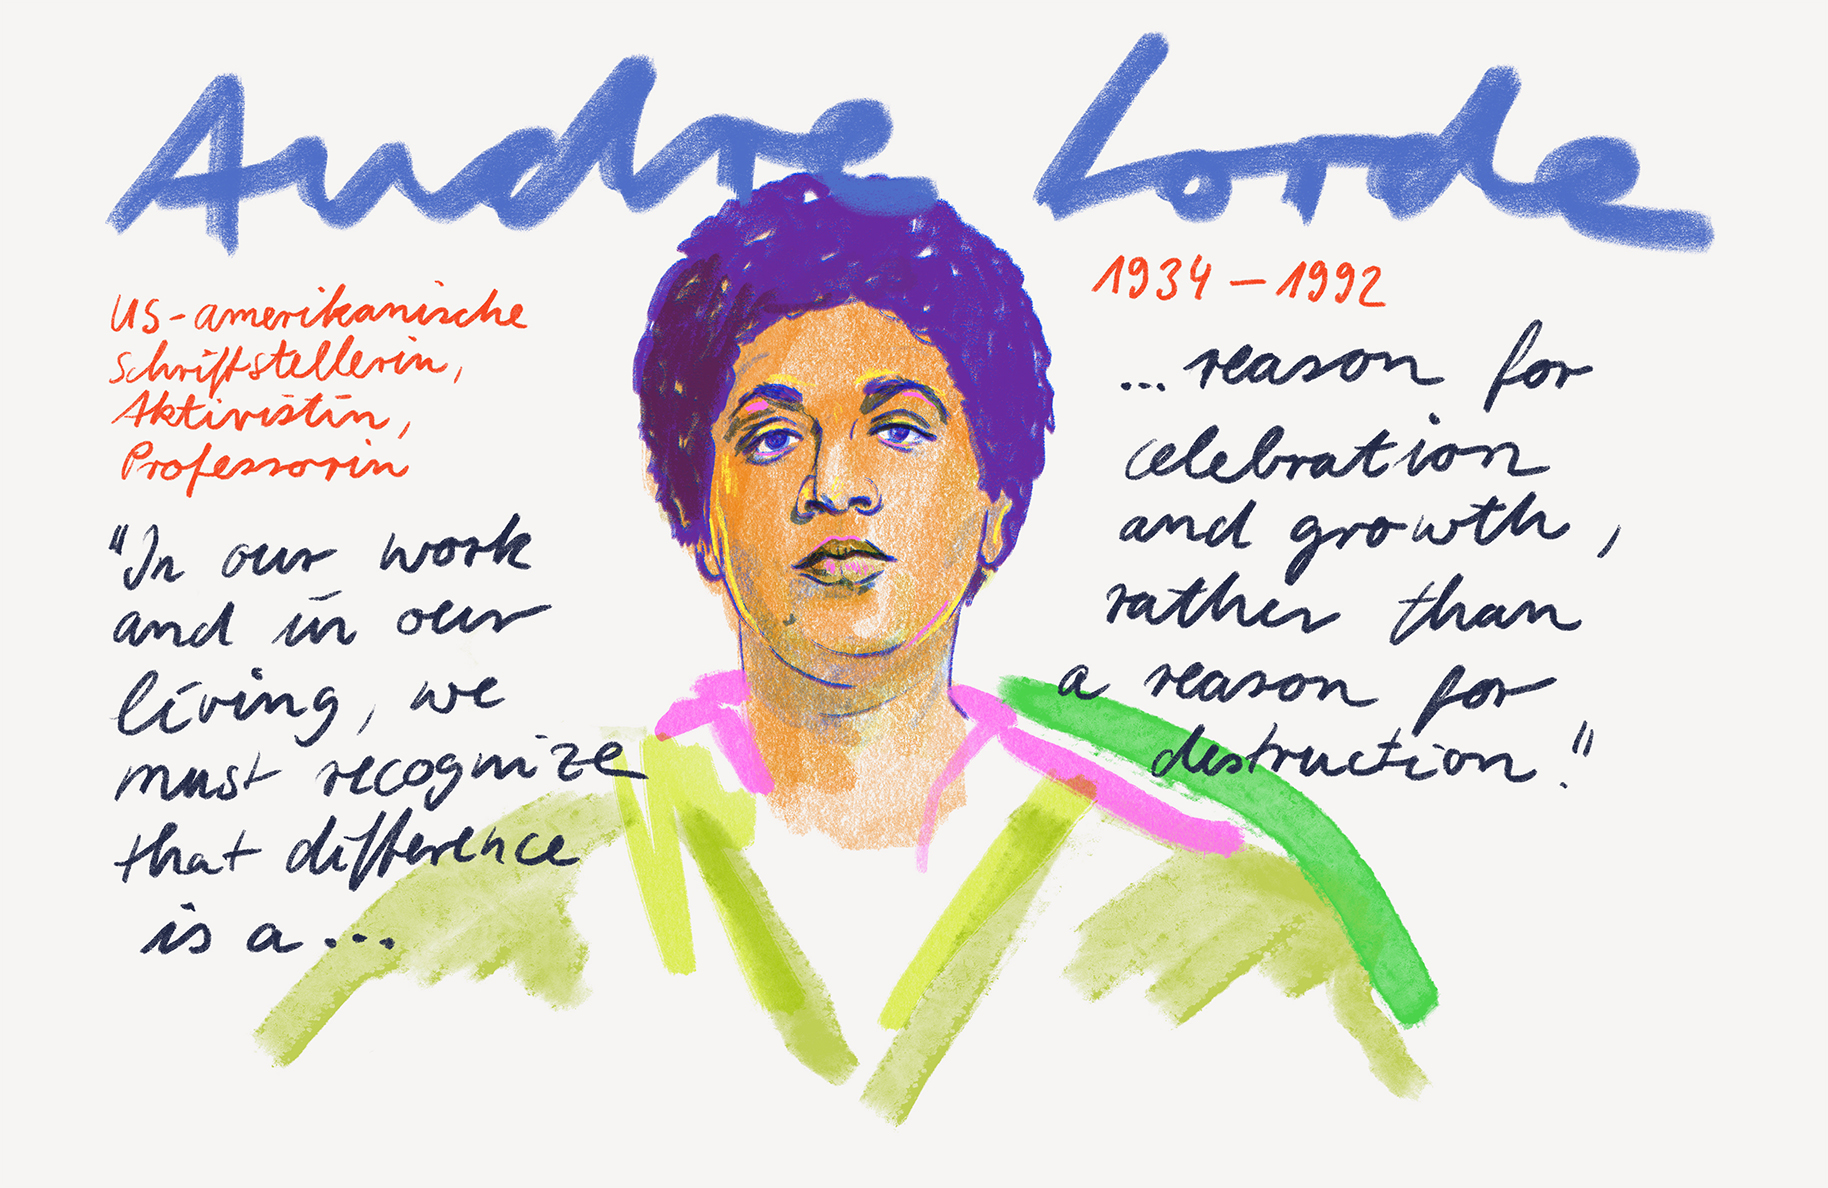 Audre Lorde
US-amerikanische
Schriftstellerin,
Aktivistin,
Professorin
"In our work
and in our
living, we
must recognize
that difference
is a...
1934 – 1992
...reason for
celebration
and growth,
rather than
a reason for
destruction."